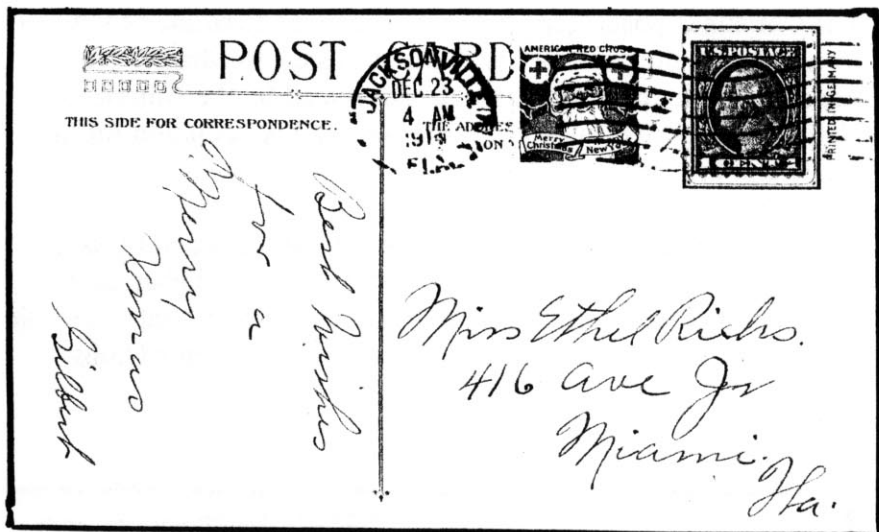 POST CARD
THIS SIDE FOR CORRESPONDENCE.
THE ADDRESS
ON
JACKSONVILLE
DEC 23
4 AM
FLA.
AMERICAN RED CROSS
Merry Christmas
New Year
U.S. POSTAGE
CENT
PRINTED IN GERMANY
Best Wishes
for a
Merry
Xmas
Gilbert
Miss Ethel
416 Ave
Miami.
Fla.